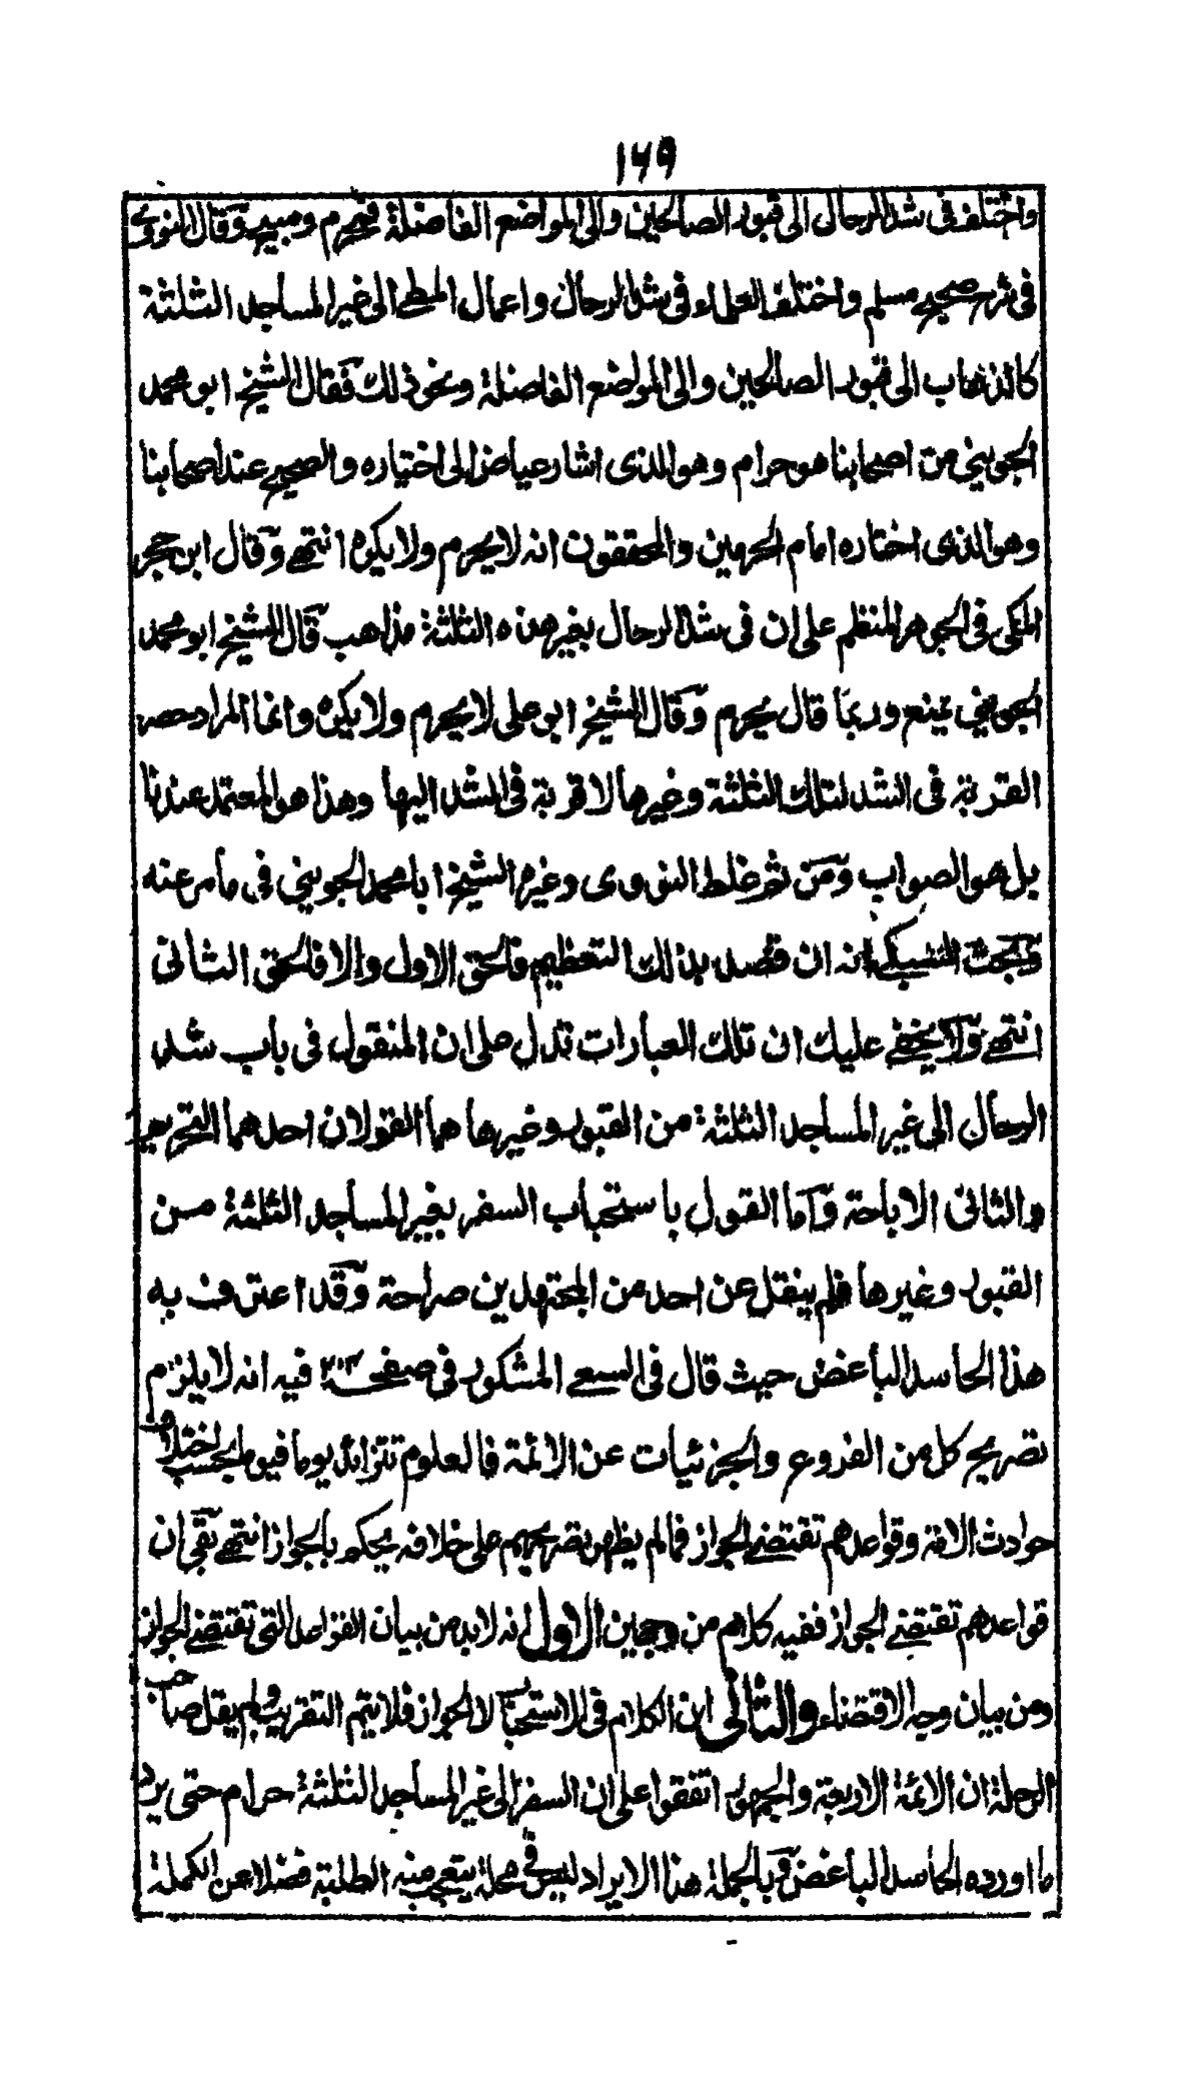 ١٦٩
واختلف فى شد الرحال الى قبور الصالحين والى المواضع الفاضلة فمحرم ومبيح وقال النووى
فى شرح صحيح مسلم واختلف العلماء فى شد الرحال واعمال المطے الى غير المساجد الثلثة
كالذهاب الى قبور الصالحين والى المواضع الفاضلة ونحو ذلك فقال الشيخ ابو محمد
الجوينى من اصحابنا هو حرام وهو الذى اشار عياض الى اختياره والصحيح عند اصحابنا
وهو الذى اختاره امام الحرمين والمحققون انه لا يحرم ولا يكره انتهے وقال ابن حجر
المكى فى الجوهر المنظم على ان فى شد الرحال بغير هذه الثلثة مذاهب قال الشيخ ابو محمد
الجوينى يمنع وربما قال يحرم وقال الشيخ ابو على لا يحرم ولا يكره وانما المراد حصر
القربة فى الشد لتلك الثلثة وغيرها لا قربة فى الشد اليها وهذا هو المعتمد عندنا
بل هو الصواب ومن ثم غلط النووى وغيره الشيخ ابا محمد الجوينى فى ما مر عنه
وبحث السبكى انه ان قصد بذلك التعظيم فالحق الاول والا فالحق الثانى
انتهے ولا يخفے عليك ان تلك العبارات تدل على ان المنقول فى باب شد
الرحال الى غير المساجد الثلثة من القبور وغيرها هما القولان احدهما التحريم
والثانى الاباحة واما القول باستحباب السفر بغير المساجد الثلثة من
القبور وغيرها فلم ينقل عن احد من المجتهدين صراحة وقد اعترف به
هذا الحاسد الباغض حيث قال فى السعے المشكور فى صفحہ ٢١٣ فيه انه لا يلزم
تصريح كل من الفروع والجزئيات عن الائمة فالعلوم تتزائد يوما فيوما بحسب اختلاف
حوادث الافة وقواعدهم تقتضے الجواز فما لم يظهر تصريحهم على خلافه يحكم بالجواز انتهے بقى ان
قواعدهم تقتضے الجواز ففيه كلام من وجهين الاول انه لابد من بيان القواعد التى تقتضے الجواز
ومن بيان وجه الاقتضاء والثانى ان الكلام فى الاستحباب لا الجواز فلا يتم التقريب ولم يقل صاحب
الرحلة ان الائمة الاربعة والجمهور اتفقوا على ان السفر الى غير المساجد الثلثة حرام حتى يرد
ما اورده الحاسد الباغض وبالجملة هذا الايراد ليس فى محلة يتعجب منه الطلبة فضلا عن الكملة